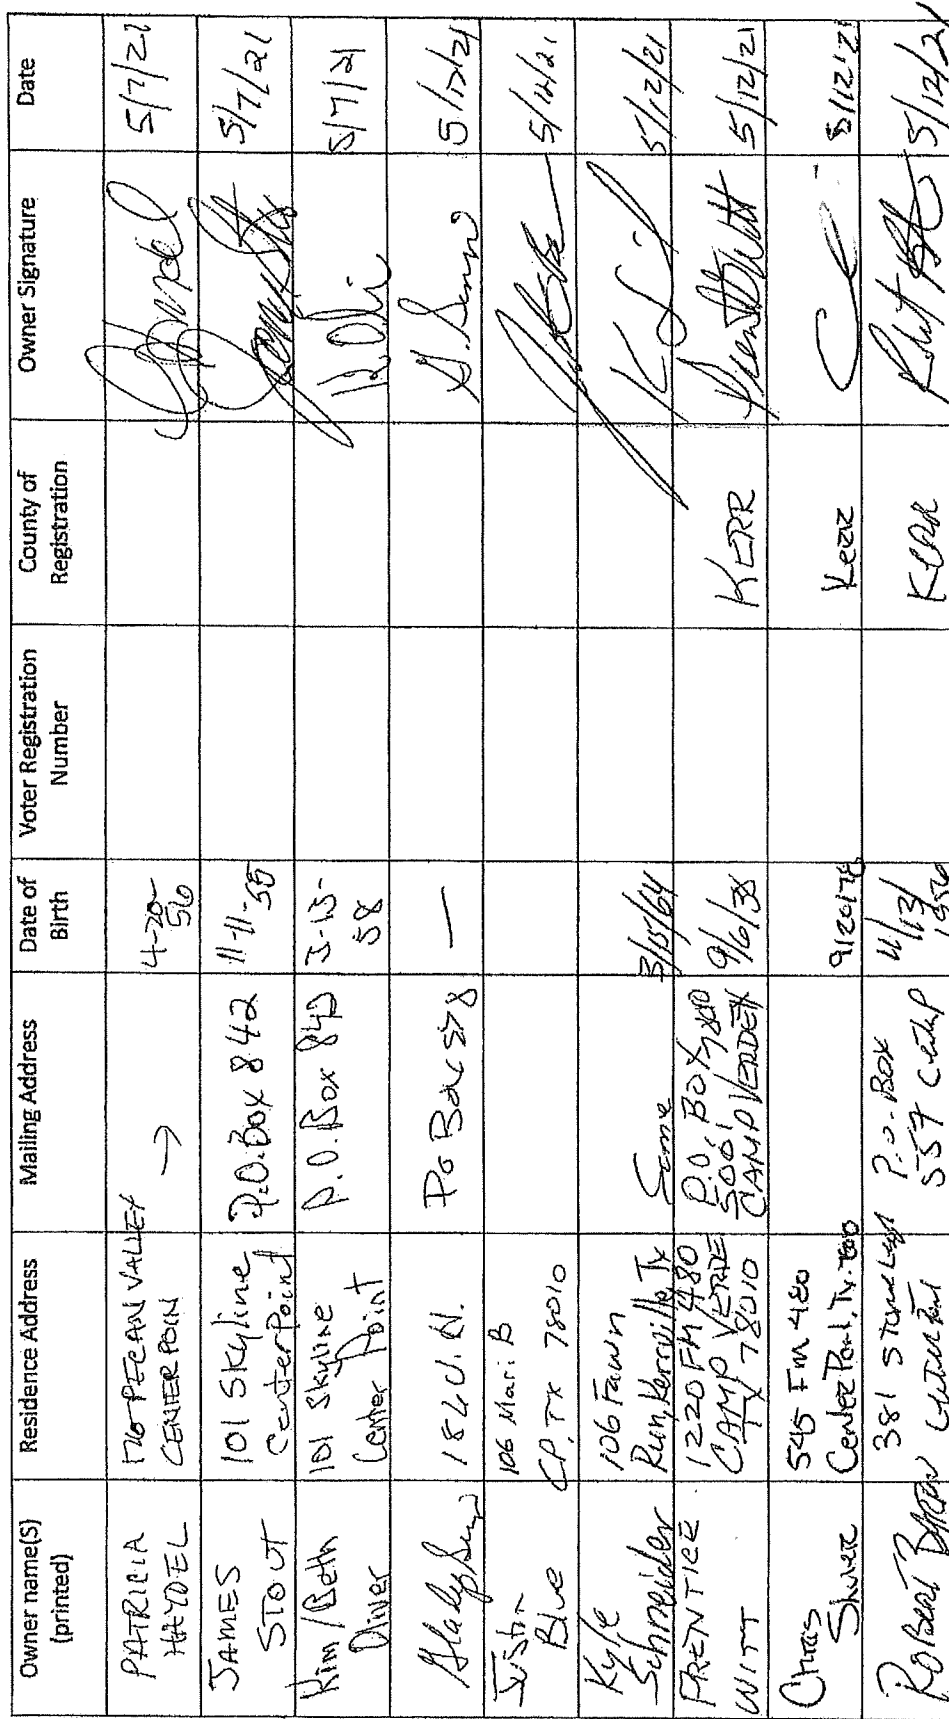 Owner name(S) (printed)
Residence Address
Mailing Address
Date of Birth
Voter Registration Number
County of Registration
Owner Signature
Date
PATRICIA HAYDEL
PECAN VALLEY
CENTERPOIN
→
4-20-56
5/7/21
JAMES STOUT
101 Skyline
CenterPoint
P.O. Box 842
11-11-55
5/7/21
Kim/Beth
101 Skyline
Center Point
P.O. Box 842
58
5/7/21
184 U.N.
Po Box 578
—
5/12/21
Justin Blue
106 Mari. B
CP, TX 78010
5/12/21
Kyle Schneider
106 Fawn
Run, Kerrville, Tx
Same
3/15/64
5/12/21
PRENTICE WITT
1220 FM 480
CAMP VERDE
TX 78010
P.O. BOX
CAMP VERDE TX
9/6/38
KERR
5/12/21
Chris
545 Fm 480
Center Point, Tx.
Kerr
5/12/21
ROBERT
381
P.O. BOX
557
11/13/
Kerr
5/12/21